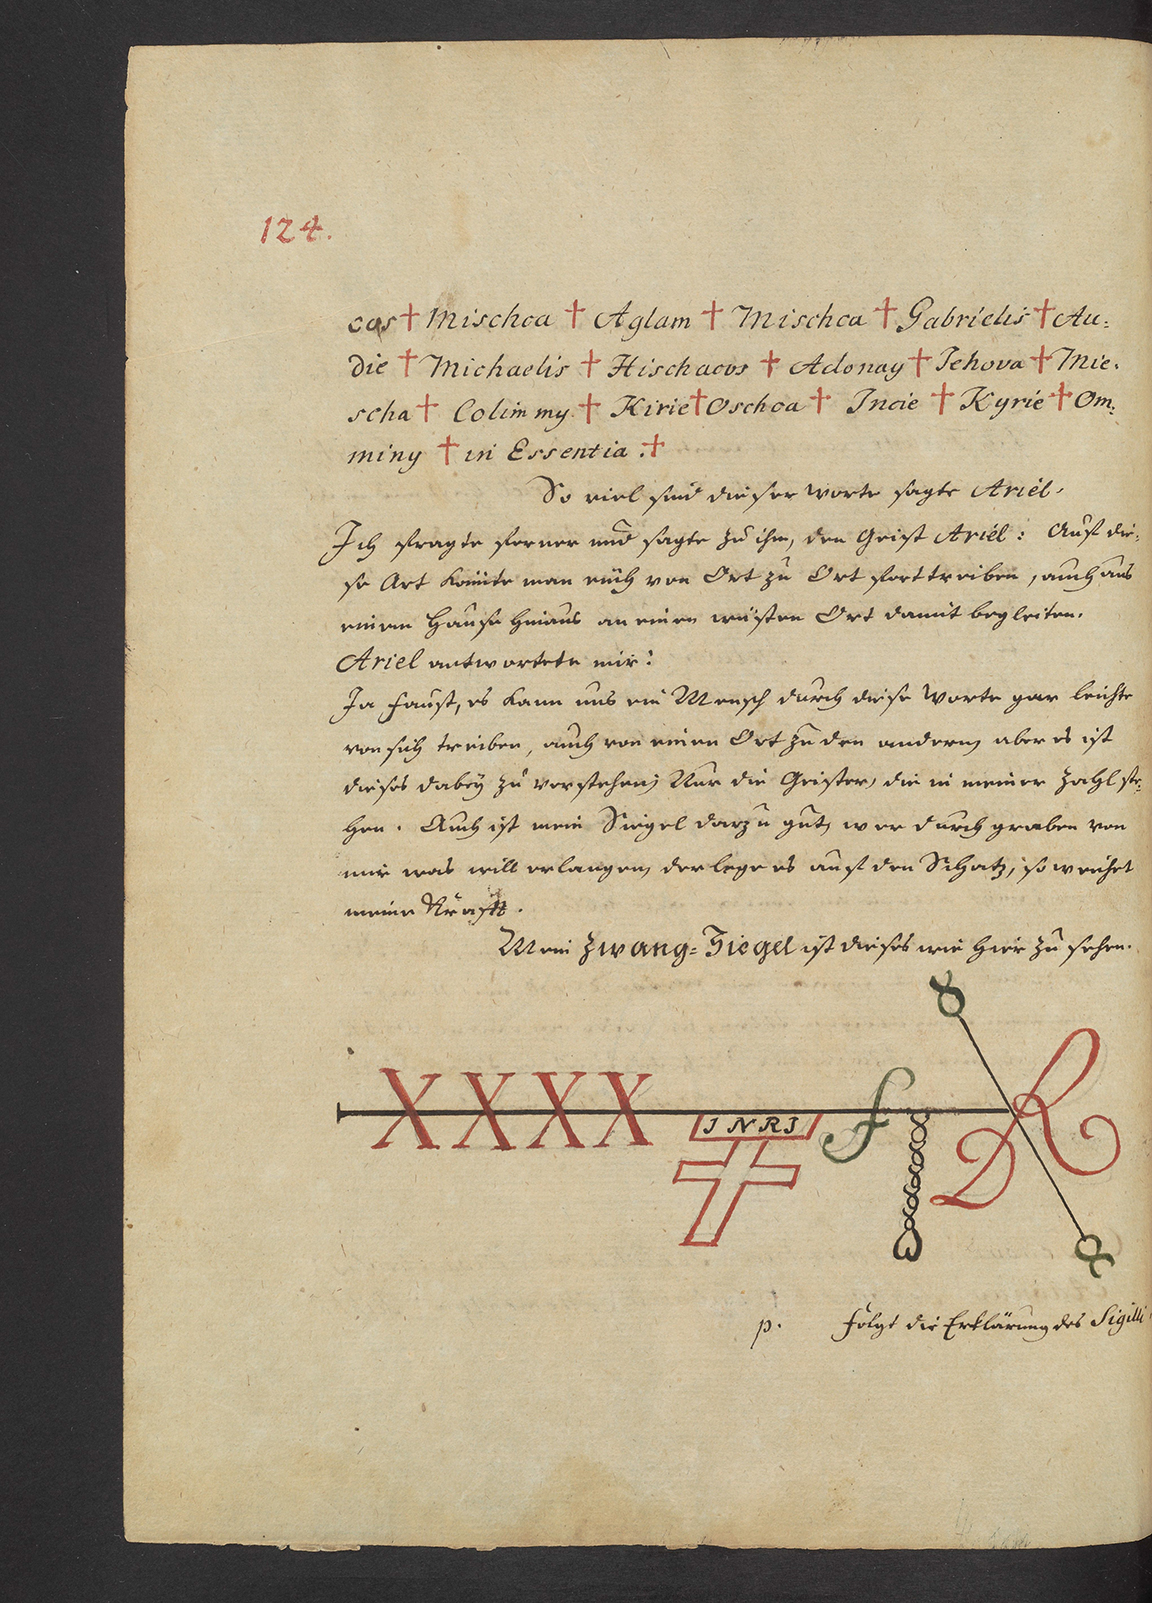 124.
cas † Mischca † Aglam † Mischca † Gabrielis † Au:
die † Michaelis † Hischacos † Adonay † Jehova † Mie:
scha † Colimmy † Kirie † Oschca † Incie † Kyrie † Om:
miny † in Essentia :†
So viel sind dieser Worte sagte Ariel.
Ich fragte ferner und sagte zu ihm, den Geist Ariel: Auf die:
se Art könte man euch von Ort zu Ort forttreiben, auch aus
einem Hause hinaus an einen wüsten Ort damit begleiten.
Ariel antwortete mir:
Ja Faust, es kann uns ein Mensch durch diese Worte gar leichte
von sich treiben, auch von einen Ort zu den andern, aber es ist
dieses dabey zu verstehen, Nur die Geister, die in meiner Zahl ste:
hen. Auch ist mein Siegel darzu gut, wer durch graben von
mir was will erlangen, der lege es auf den Schatz, so weichet
meine Krafft.
Mein Zwang=Siegel ist dieses wie hier zu sehen.
XXXX
INRI
f
R
D
p. Folgt die Erklärung des Sigilli